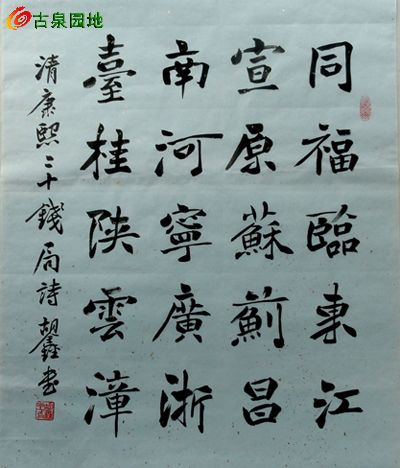 古泉园地
同福臨東江
宣原蘇薊昌
南河寧廣浙
臺桂陝雲漳
清康熙二十錢局詩 胡鑫書